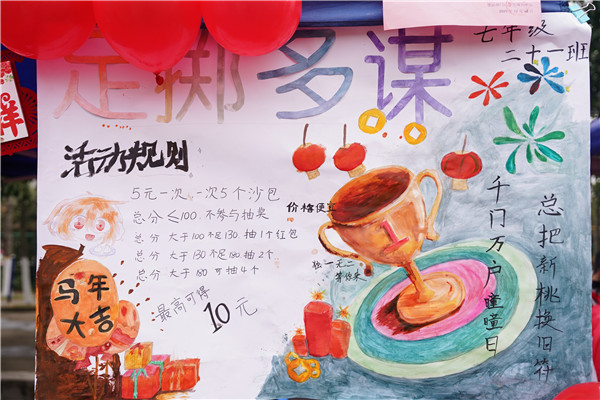 足掷多谋
七年级
二十一班
活动规则
5元一次,一次5个沙包
总分≤100.不参与抽奖
总分 大于100不足130.抽1个红包
总分 大于130不足180抽2个
总分 大于180可抽4个
最高可得
10元
马年
大吉
价格便宜
独一无二
等你来
千门万户瞳瞳日
总把新桃换旧符